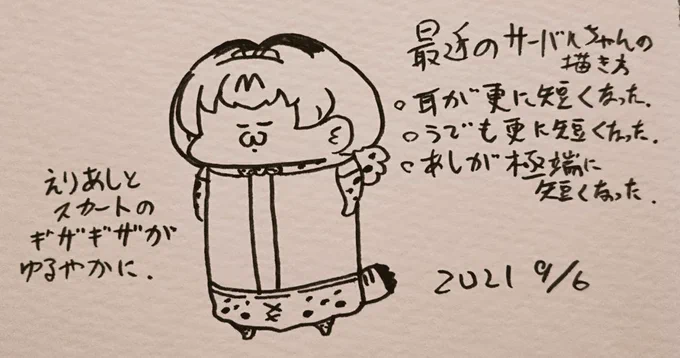 最近のサーバルちゃんの
描き方
○耳が更に短くなった.
○うでも更に短くなった.
○あしが極端に
短くなった.
えりあしと
スカートの
ギザギザが
ゆるやかに.
2021 9/6